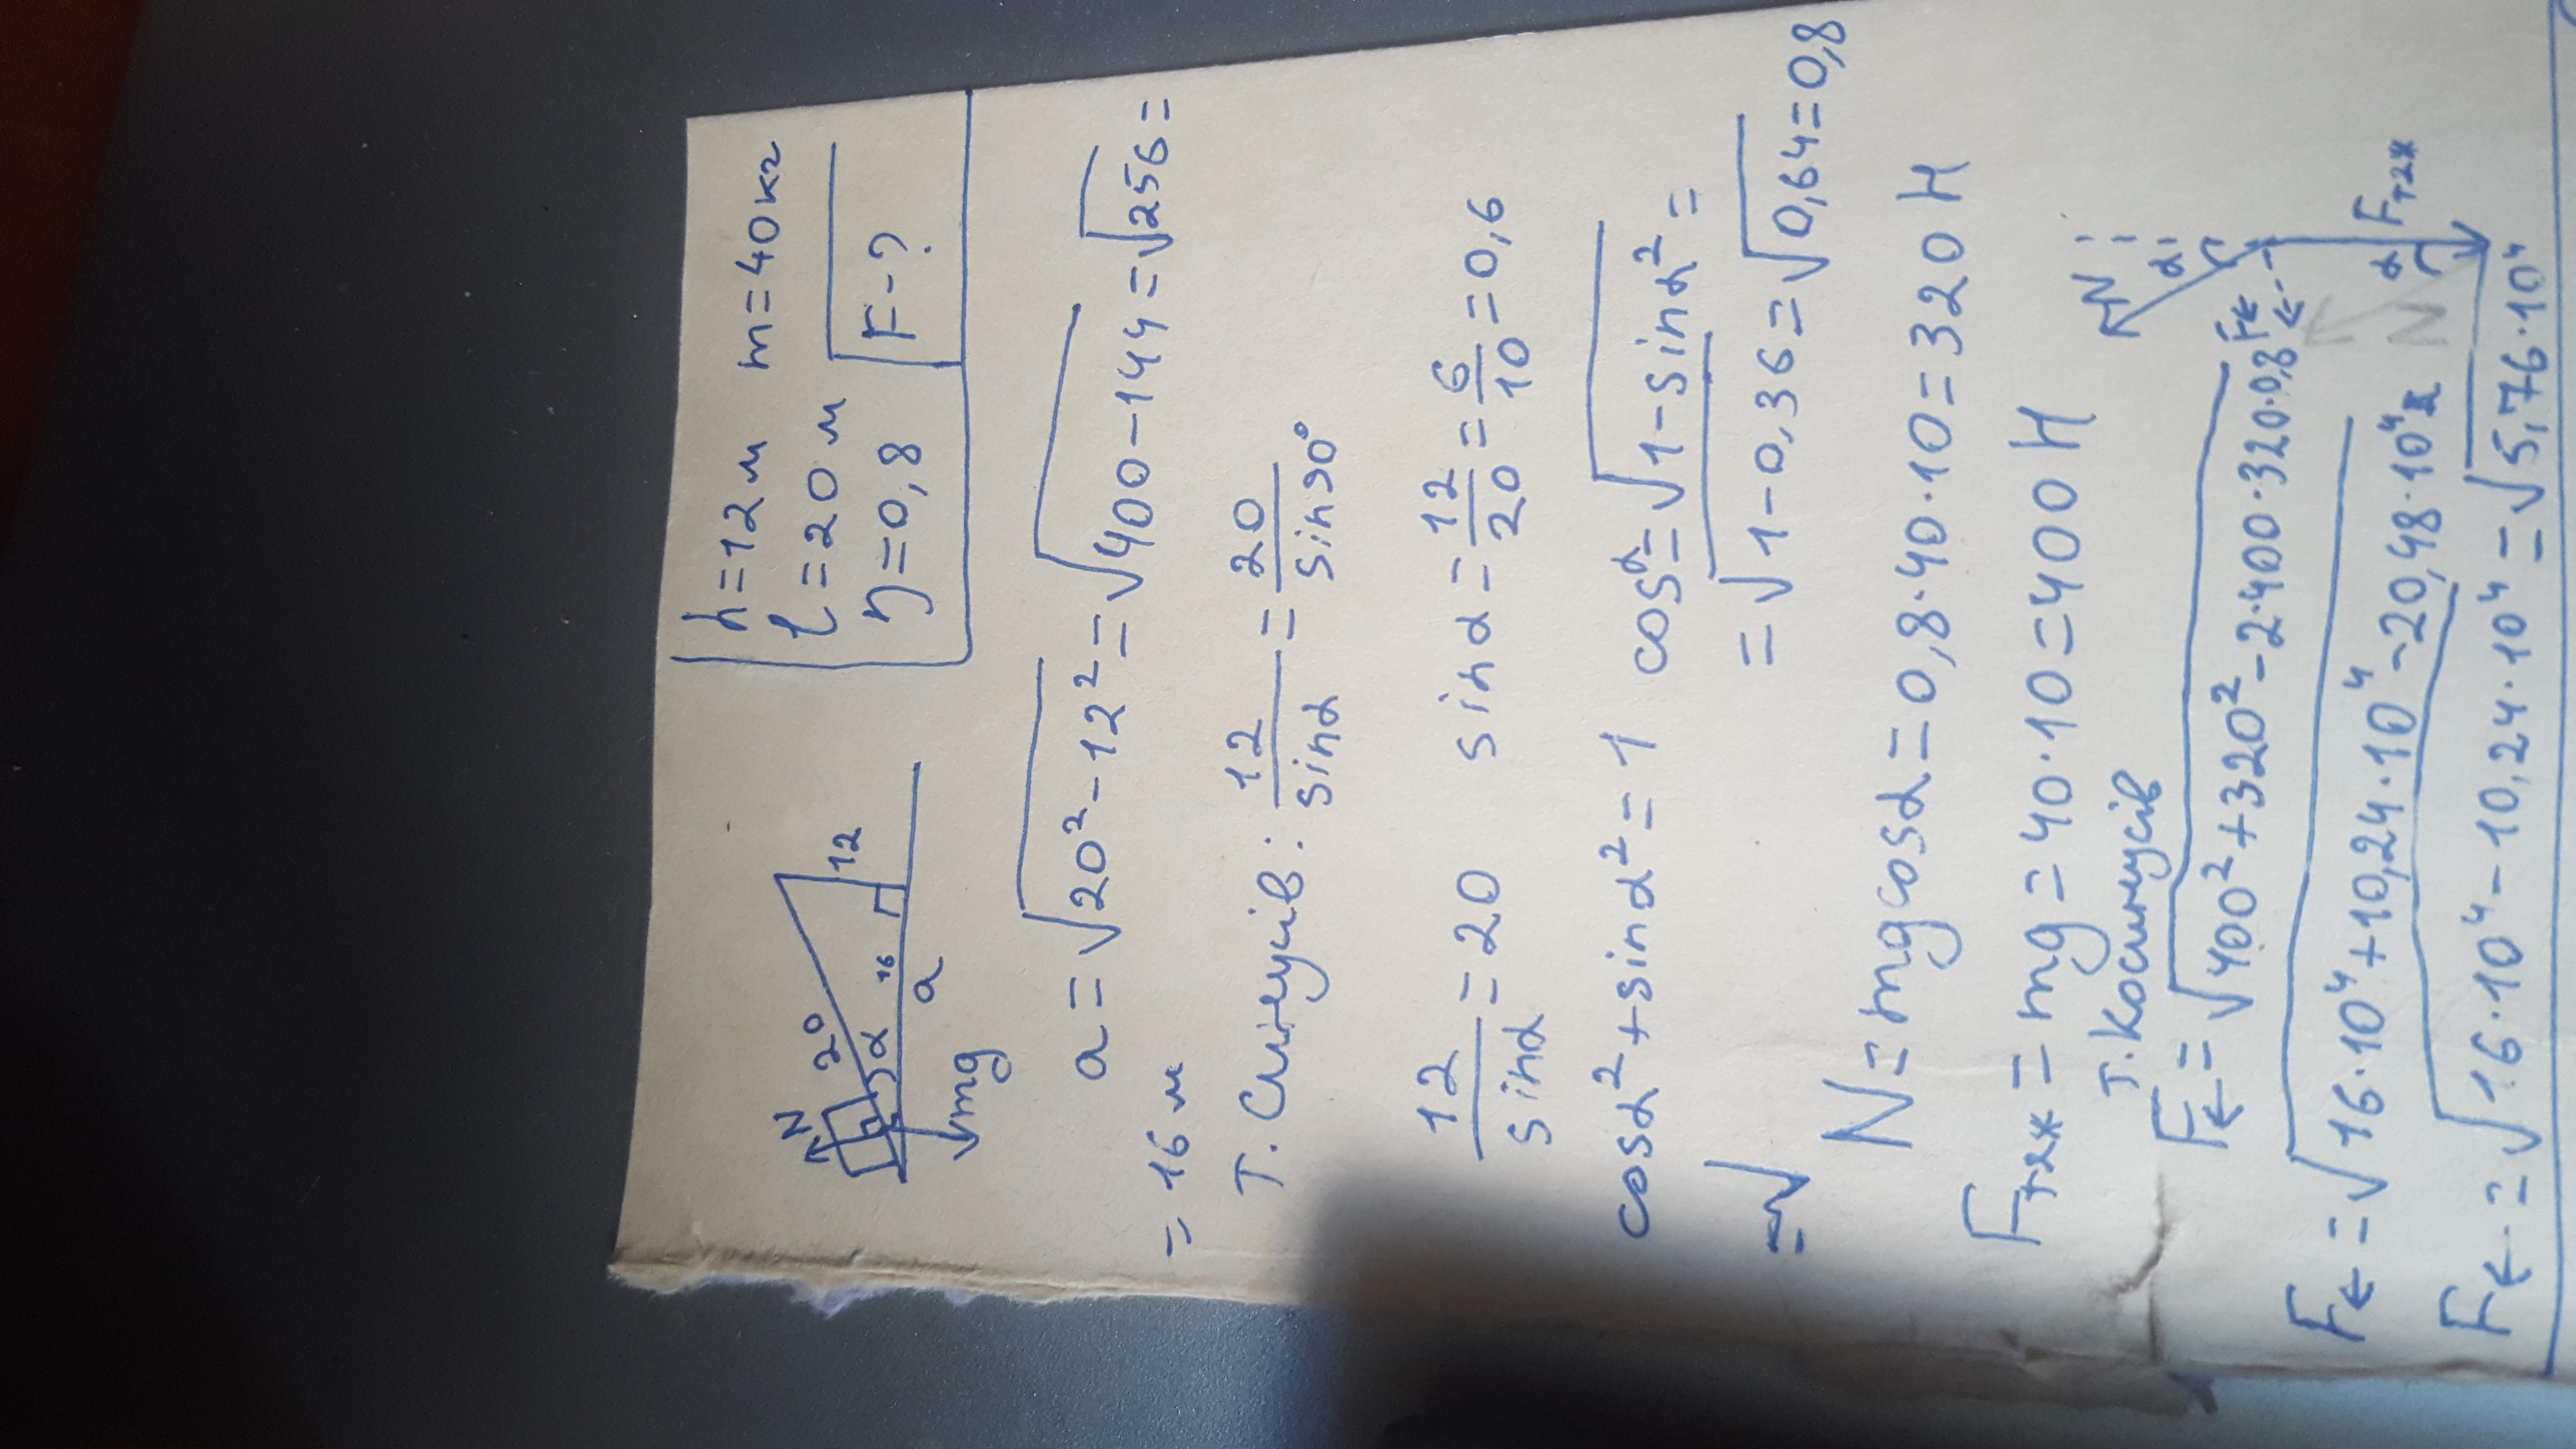 N 20 α 16 12 a mg
h=12м m=40кг
l=20м
η=0,8 F-?
a=√20²-12²=√400-144=√256=
=16м
Т. Синусів: 12/sinα=20/sin90°
12/sinα=20 sinα=12/20=6/10=0,6
cosα²+sinα²=1 cosα=√1-sinα²=
=√1-0,36=√0,64=0,8
N=mgcosα=0,8·40·10=320Н
Fтяж=mg=40·10=400Н
Т. Косинусів
N α
F←=√400²+320²-2·400·320·0,8
F←
α Fтяж
N
F←=√16·10⁴+10,24·10⁴-20,48·10⁴
F←=√16·10⁴-10,24·10⁴=√5,76·10⁴